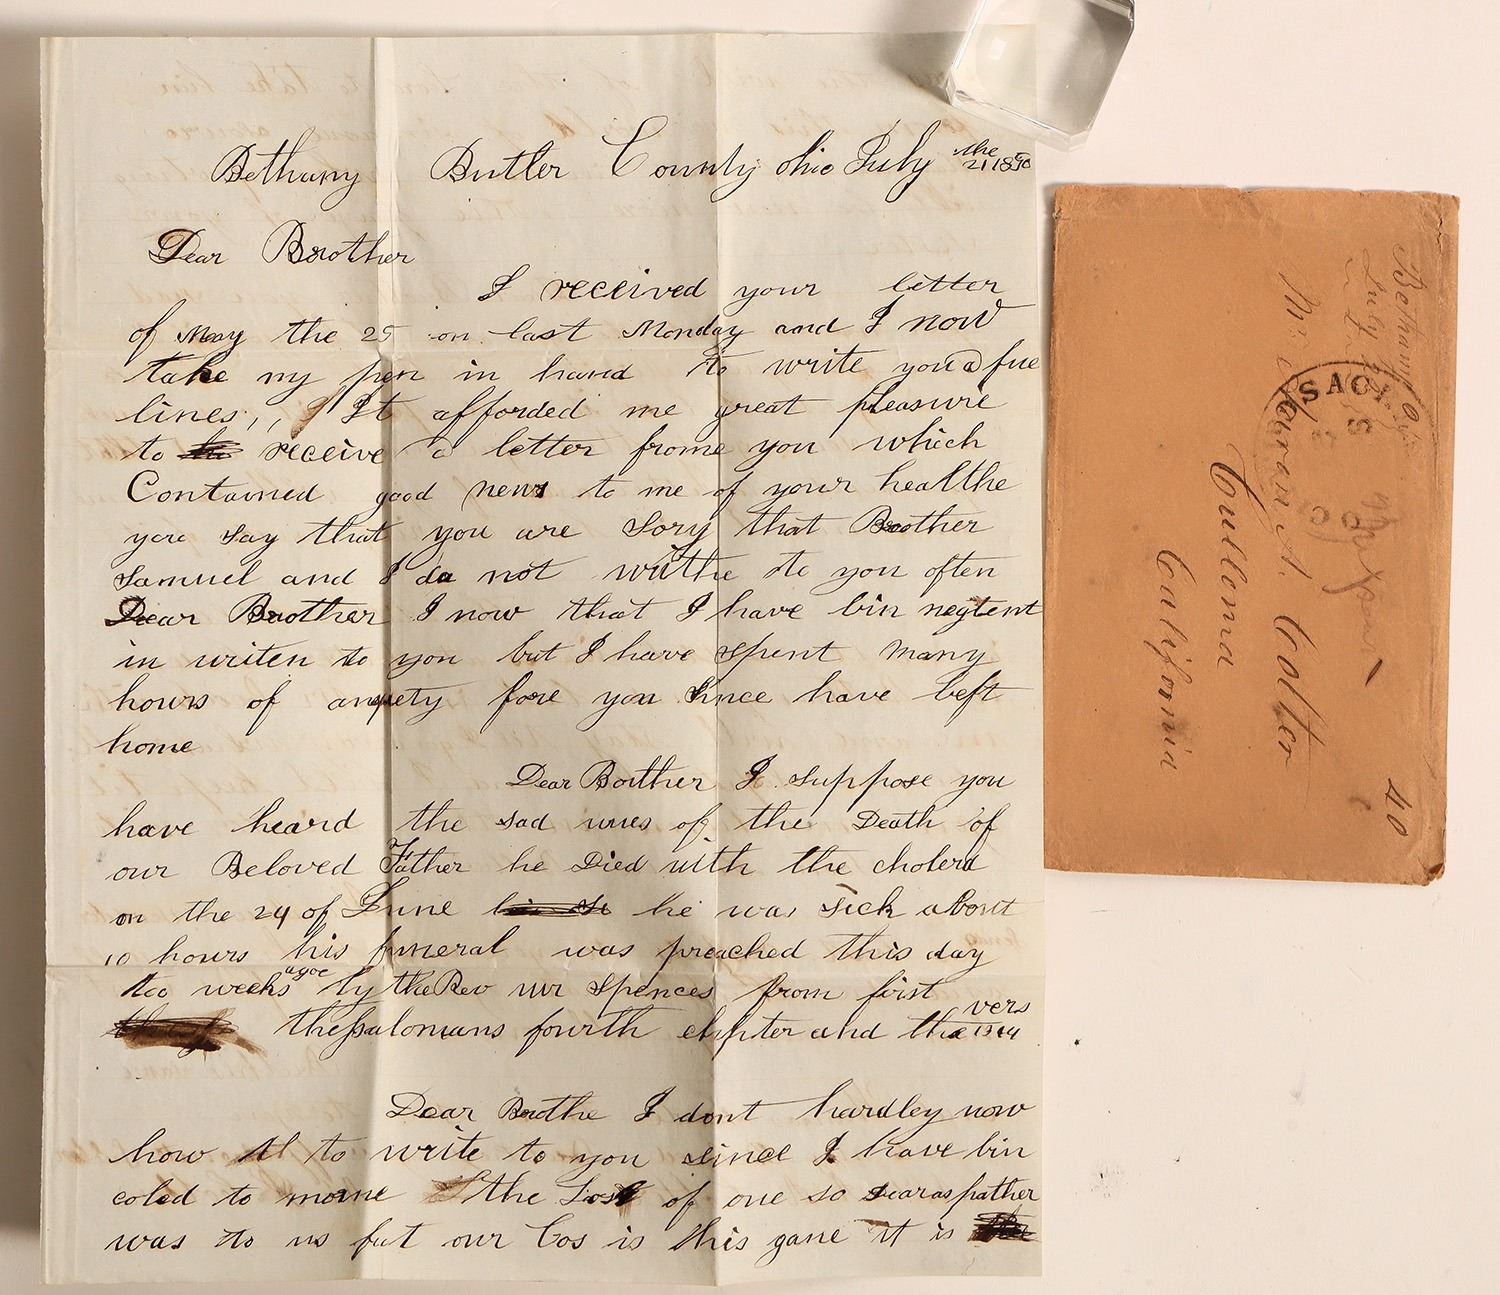 Bethany Butler County ohio July the 21 1850
Dear Brother
I received your letter
of May the 25 on last Monday and I now
take my pen in hand to write you a fue
lines,, It afforded me great pleasure
to receive a letter frome you which
Contained good news to me of your healthe
you say that you are Sory that Brother
Samuel and I do not writhe to you often
Dear Brother I now that I have bin neglent
in writen to you but I have spent many
hours of anxiety fore you Since have left
home
Dear Borther I suppose you
have heard the sad nues of the Death of
our Beloved Father he Died with the cholera
on the 24 of June he was sick about
10 hours his funeral was preached this day
too weeks agoe by the Rev mr Spences from first
thessalonians fourth chpter and the 13 14 vers
Dear Brothe I dont hardley now
how to write to you since I have bin
coled to morne the Lost of one so dear as father
was to us but our Los is this gane it is
Bethany O
July
Mr A. Colter
Culloma
California
SAC
40